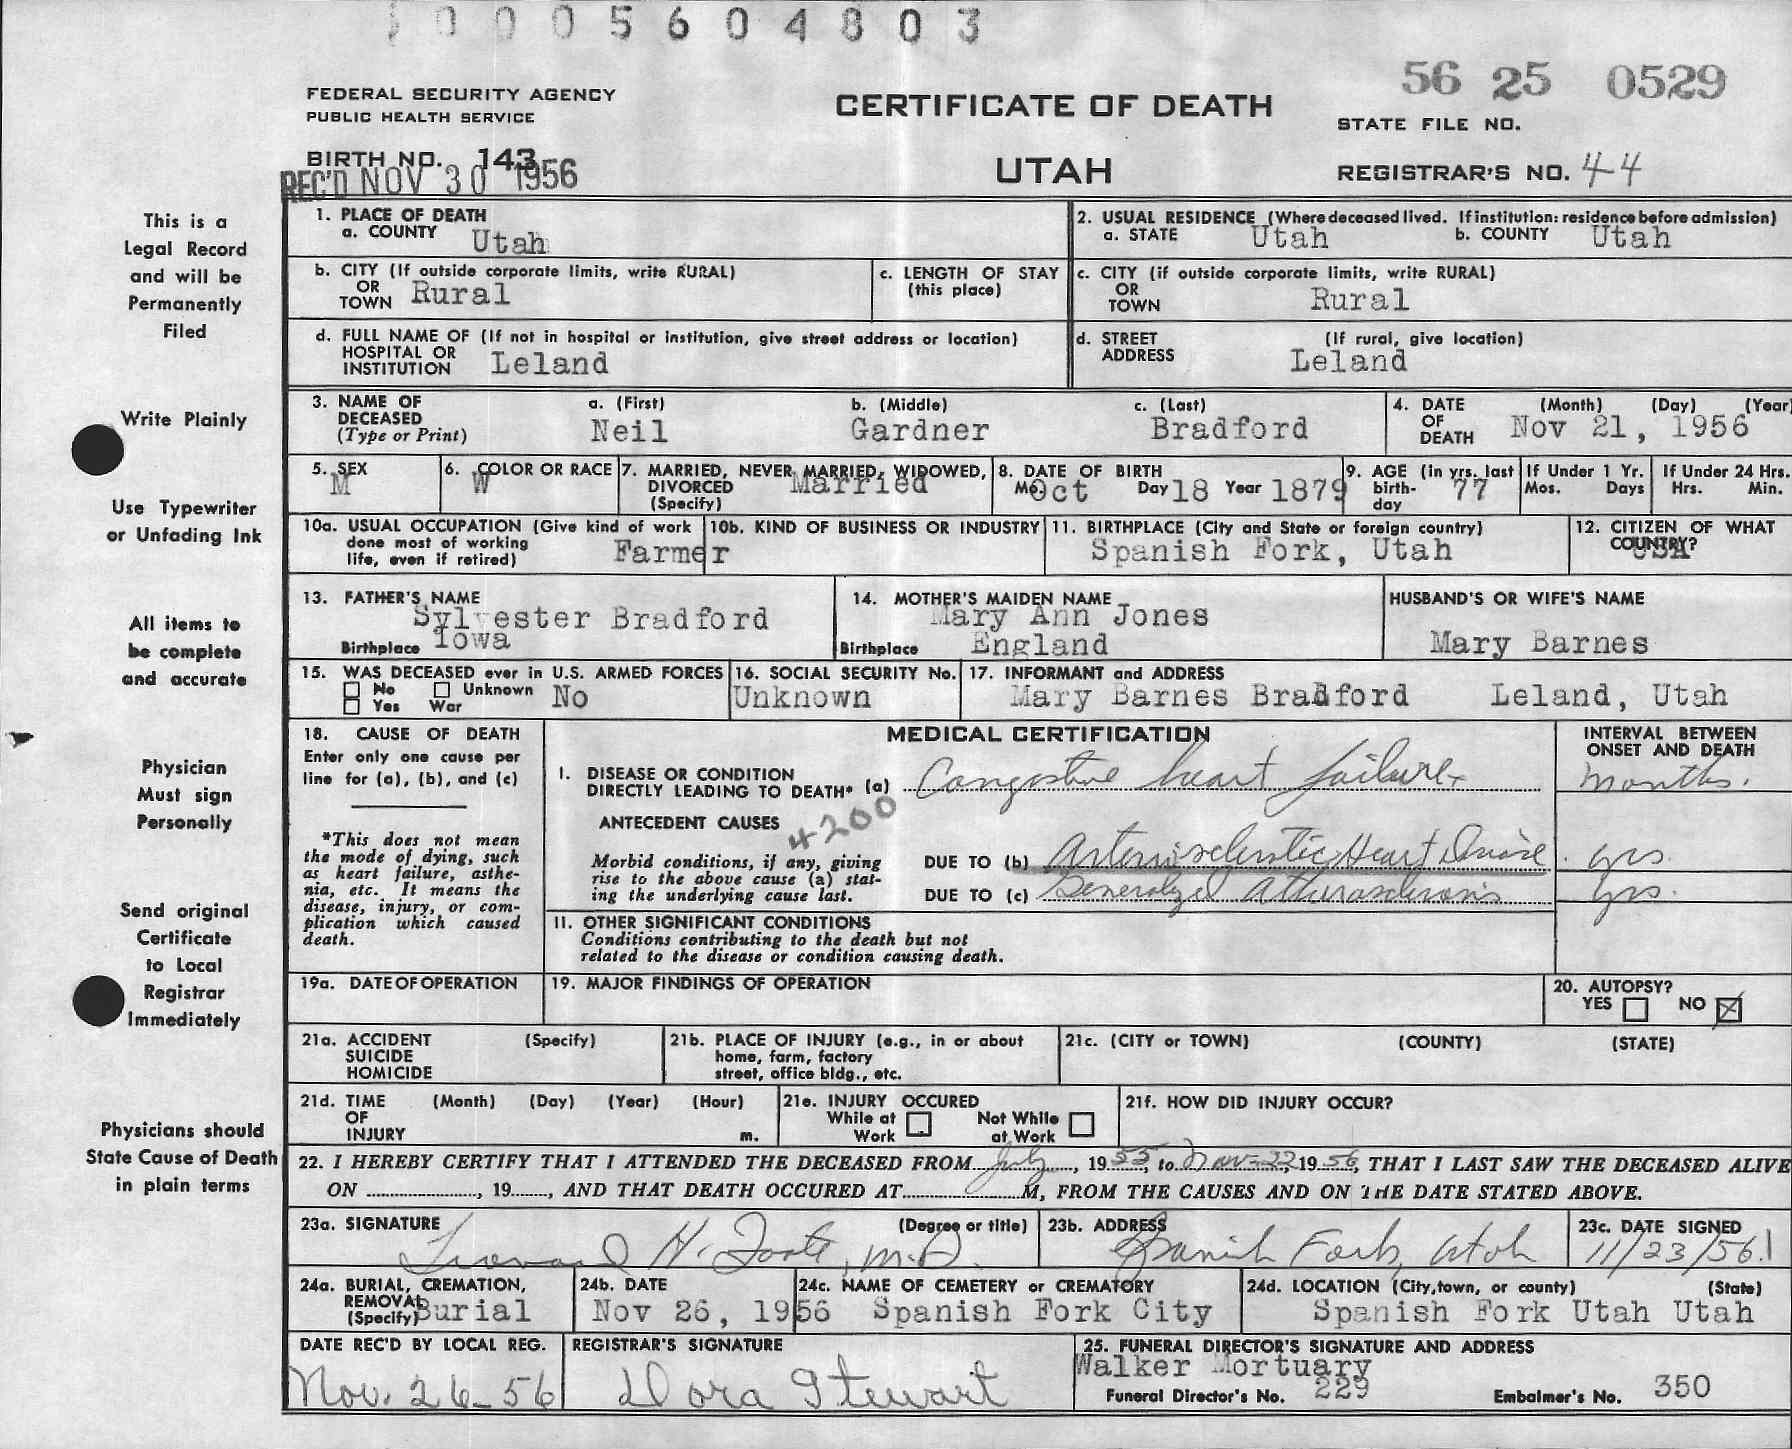 0005604803
56 25 0529
FEDERAL SECURITY AGENCY
PUBLIC HEALTH SERVICE
CERTIFICATE OF DEATH
STATE FILE NO.
BIRTH NO. 143
REC'D NOV 30 1956
UTAH
REGISTRAR'S NO. 44
This is a
Legal Record
and will be
Permanently
Filed
Write Plainly
Use Typewriter
or Unfading Ink
All items to
be complete
and accurate
Physician
Must sign
Personally
Send original
Certificate
to Local
Registrar
Immediately
Physicians should
State Cause of Death
in plain terms
1. PLACE OF DEATH
a. COUNTY Utah
2. USUAL RESIDENCE (Where deceased lived. If institution: residence before admission)
a. STATE Utah b. COUNTY Utah
b. CITY (If outside corporate limits, write RURAL)
OR
TOWN Rural
c. LENGTH OF STAY
(this place)
c. CITY (if outside corporate limits, write RURAL)
OR
TOWN Rural
d. FULL NAME OF (If not in hospital or institution, give street address or location)
HOSPITAL OR
INSTITUTION Leland
d. STREET (If rural, give location)
ADDRESS Leland
3. NAME OF DECEASED
(Type or Print)
a. (First) b. (Middle) c. (Last)
Neil Gardner Bradford
4. DATE (Month) (Day) (Year)
OF
DEATH Nov 21, 1956
5. SEX
M
6. COLOR OR RACE
W
7. MARRIED, NEVER MARRIED, WIDOWED,
DIVORCED Married
(Specify)
8. DATE OF BIRTH
Mo Oct Day 18 Year 1879
9. AGE (in yrs. last
birth- 77
day
If Under 1 Yr.
Mos. Days
If Under 24 Hrs.
Hrs. Min.
10a. USUAL OCCUPATION (Give kind of work
done most of working
life, even if retired) Farmer
10b. KIND OF BUSINESS OR INDUSTRY
11. BIRTHPLACE (City and State or foreign country)
Spanish Fork, Utah
12. CITIZEN OF WHAT
COUNTRY? USA
13. FATHER'S NAME
Sylvester Bradford
Birthplace Iowa
14. MOTHER'S MAIDEN NAME
Mary Ann Jones
Birthplace England
HUSBAND'S OR WIFE'S NAME
Mary Barnes
15. WAS DECEASED ever in U.S. ARMED FORCES
No Unknown No
Yes War
16. SOCIAL SECURITY No.
Unknown
17. INFORMANT and ADDRESS
Mary Barnes Bradford Leland, Utah
18. CAUSE OF DEATH
Enter only one cause per
line for (a), (b), and (c)
*This does not mean
the mode of dying, such
as heart failure, asthe-
nia, etc. It means the
disease, injury, or com-
plication which caused
death.
MEDICAL CERTIFICATION
INTERVAL BETWEEN
ONSET AND DEATH
I. DISEASE OR CONDITION
DIRECTLY LEADING TO DEATH* (a) Congestive heart failure months.
ANTECEDENT CAUSES 4200
Morbid conditions, if any, giving
rise to the above cause (a) stat-
ing the underlying cause last.
DUE TO (b) Arteriosclerotic Heart Disease yrs.
DUE TO (c) Generalized Atherosclerosis yrs.
II. OTHER SIGNIFICANT CONDITIONS
Conditions contributing to the death but not
related to the disease or condition causing death.
19a. DATE OF OPERATION
19. MAJOR FINDINGS OF OPERATION
20. AUTOPSY?
YES NO X
21a. ACCIDENT (Specify)
SUICIDE
HOMICIDE
21b. PLACE OF INJURY (e.g., in or about
home, farm, factory
street, office bldg., etc.
21c. (CITY or TOWN) (COUNTY) (STATE)
21d. TIME (Month) (Day) (Year) (Hour)
OF
INJURY m.
21e. INJURY OCCURED
While at Work Not While at Work
21f. HOW DID INJURY OCCUR?
22. I HEREBY CERTIFY THAT I ATTENDED THE DECEASED FROM July, 1955, to Nov-22 1956, THAT I LAST SAW THE DECEASED ALIVE
ON ......, 19......, AND THAT DEATH OCCURED AT......M, FROM THE CAUSES AND ON THE DATE STATED ABOVE.
23a. SIGNATURE (Degree or title)
H. Foote, M.D.
23b. ADDRESS
Spanish Fork, Utah
23c. DATE SIGNED
11/23/56
24a. BURIAL, CREMATION,
REMOVAL
(Specify) Burial
24b. DATE
Nov 26, 1956
24c. NAME OF CEMETERY or CREMATORY
Spanish Fork City
24d. LOCATION (City, town, or county) (State)
Spanish Fork Utah Utah
DATE REC'D BY LOCAL REG.
Nov. 26-56
REGISTRAR'S SIGNATURE
Dora Stewart
25. FUNERAL DIRECTOR'S SIGNATURE AND ADDRESS
Walker Mortuary
Funeral Director's No. 229 Embalmer's No. 350